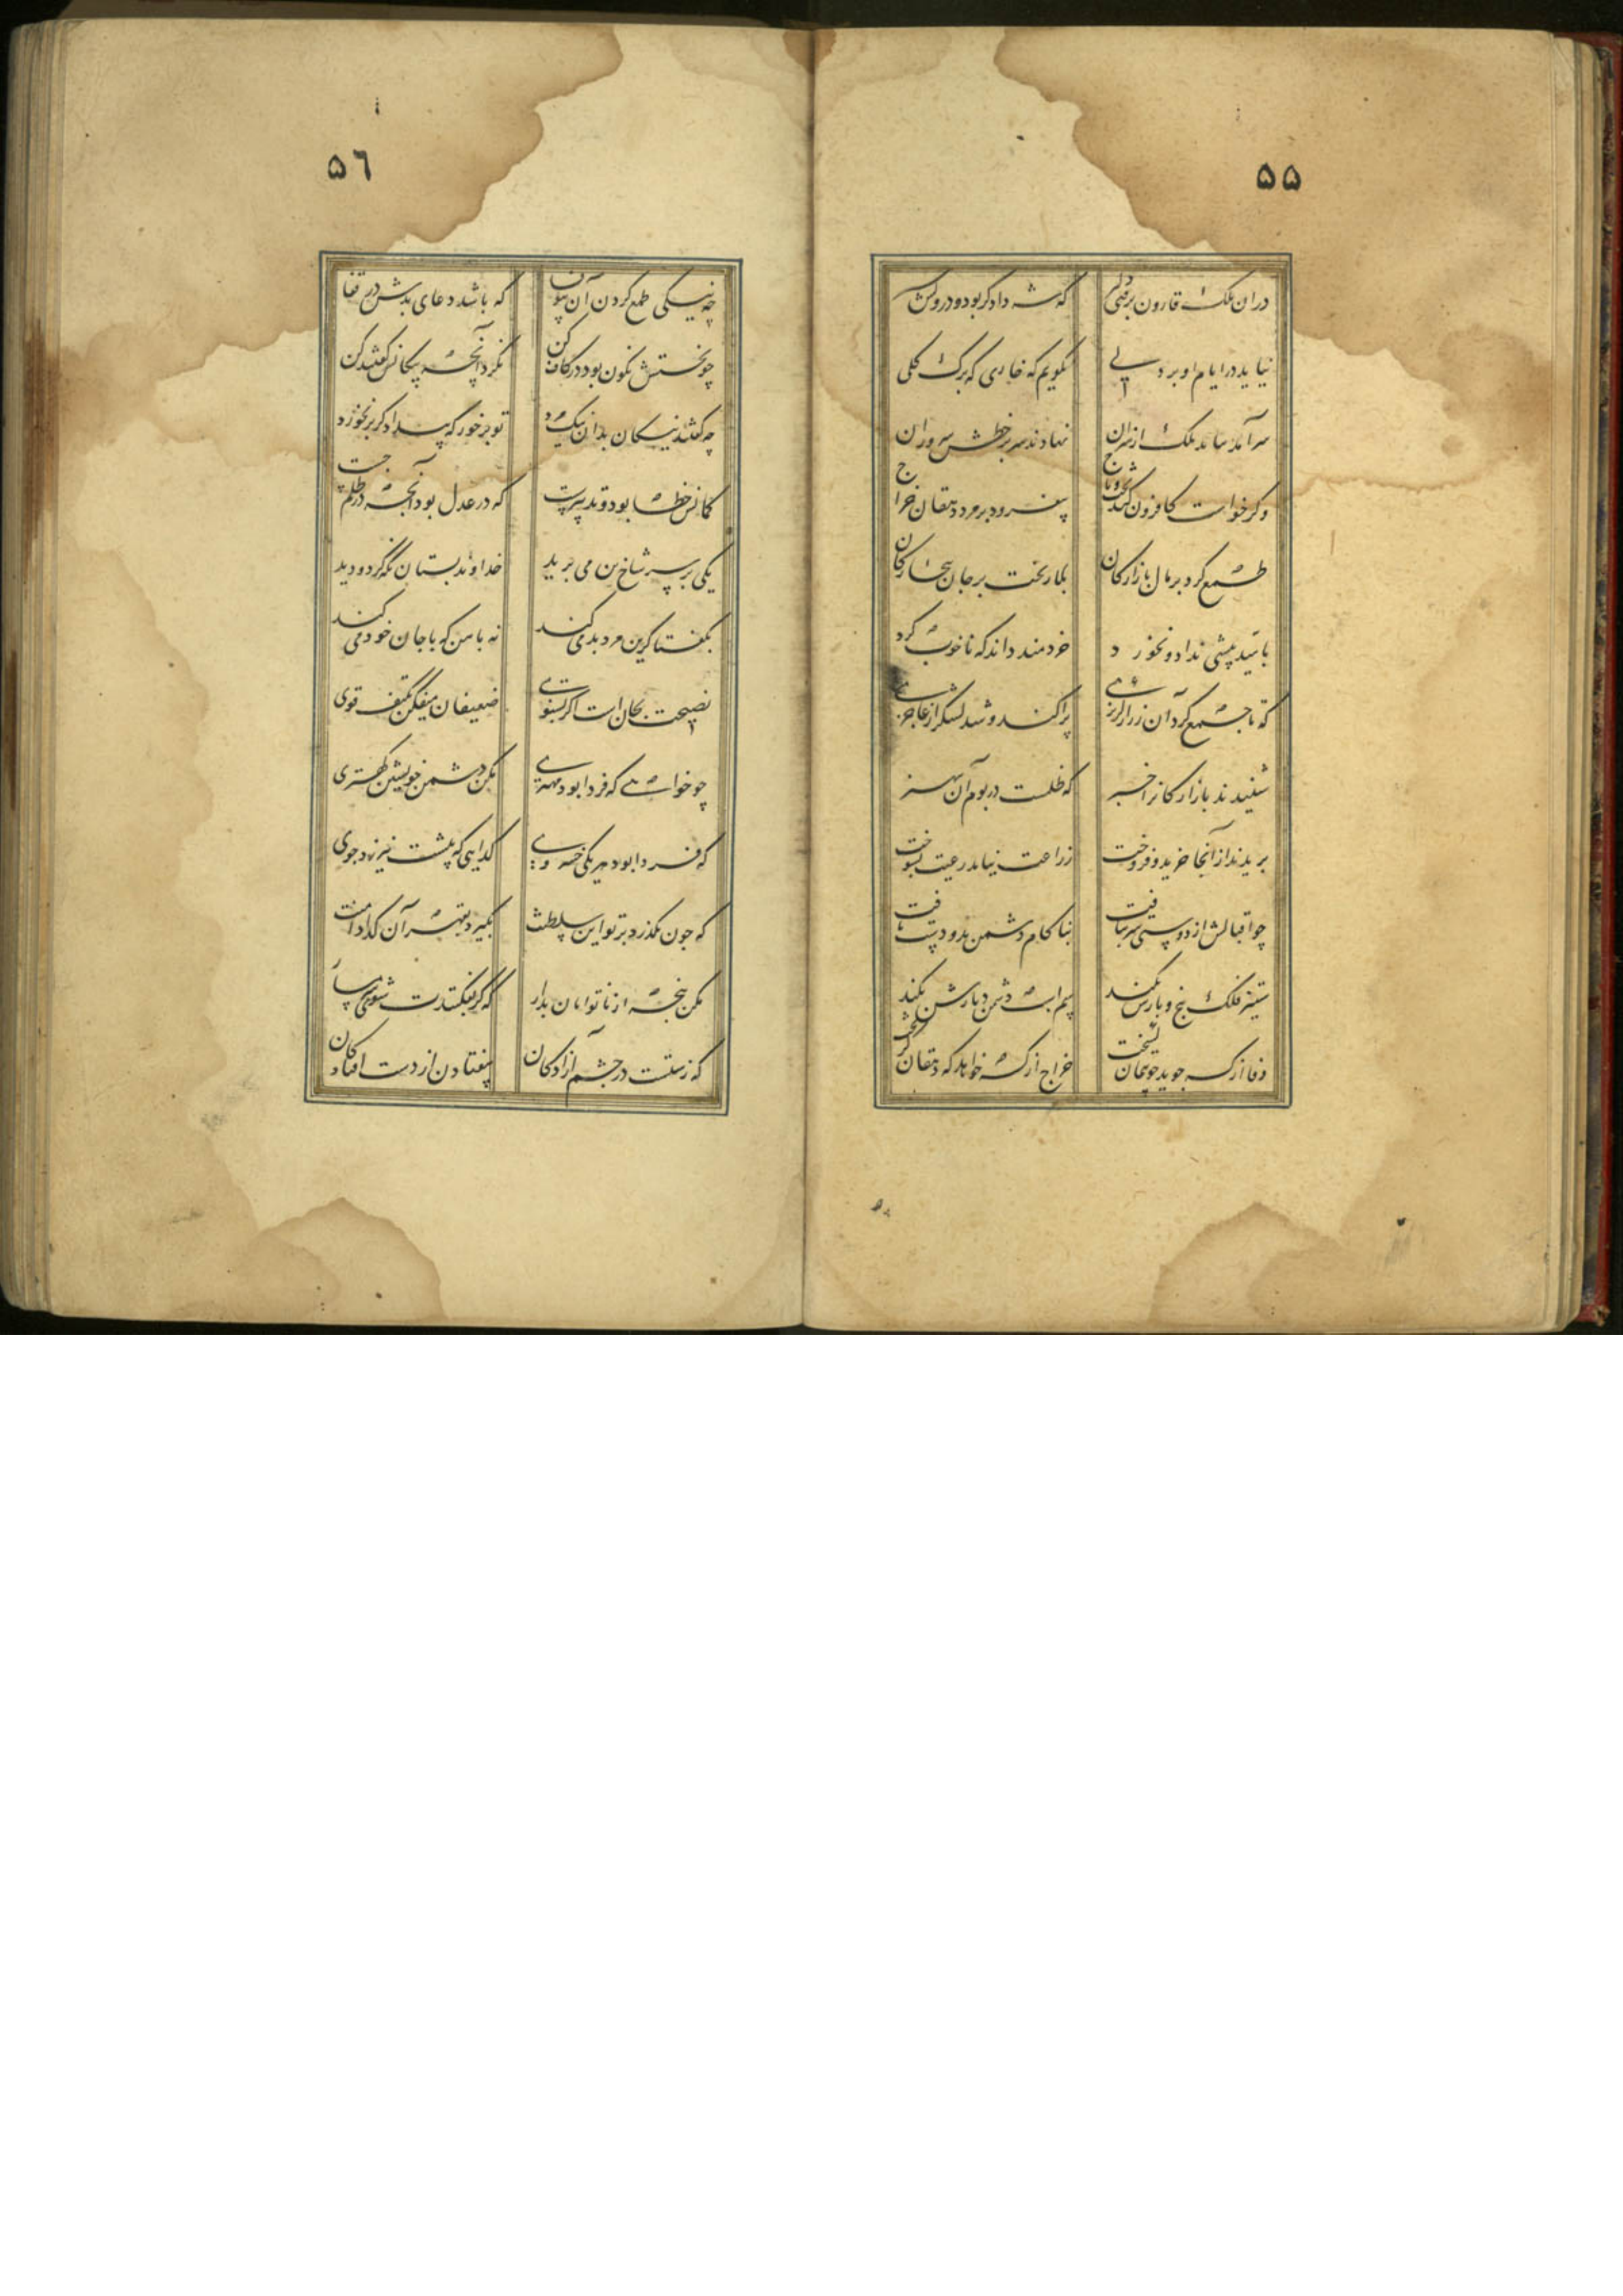 ۵۵
دران ملک قارون برفتی دلیر که شه دادگر بود و درویش
نیاید در ایام او بر دلی نگویم که خاری که برک کلی
سرآمد بتایید ملک از سران نهادند سر بر خطش سروران
دگر خواست کافزون کند تخت و تاج بیفزود بر مرد دهقان خراج
طمع کرد بر مال بازارکان بلا ریخت بر جان بیچارکان
بامید بیشی نداد و نخورد خردمند داند که ناخوب کرد
که تا جمع کرد آن زر از کربزی پراکنده شد لشکر از عاجزی
شنیدند بازارکانان خبر که ظلمست در بوم آن بی هنر
بریدند از آنجا خرید و فروخت زراعت نیامد رعیت بسوخت
چو اقبالش از دوستی سر بتافت بناکام دشمن برو دست یافت
ستیز فلک بیخ و بارش بکند سم اسب دشمن دیارش بکند
وفا از که جوید چو پیمان کسیخت خراج از که خواهد که دهقان کریخت
۵٦
چه نیکی طمع کردن آن بی‌صفا که باشد دعای بدش در قفا
چو بختش نکون بود در کاف کن نکرد آنچه نیکانش گفتند کن
چه گفتند نیکان بدان نیک مرد تو برخور که بیداد کر بر نخورد
کمانش خطا بود و تدبیر سست که در عدل بود آنچه در ظلم جست
یکی بر سر شاخ بن می برید خداوند بستان نکه کرد و دید
بگفتا کرین مرد بد می کند نه با من که با جان خود می کند
نصیحت بجان است اکر بشنوی ضعیفان میفکن بکتف قوی
چو خواهی که فردا بود مهتری مکن دشمن خویشتن کهتری
که فردا بود میر یکی خسروی کدایی که پیشت نیرزد جوی
که چون بگذرد بر تو این سلطنت بگیرد بقهر آن کدا دامنت
مکن پنجه از ناتوانان بدار که کر بفکنندت شوی شرمسار
که زشتست در چشم آزادکان بیفتادن از دست افتادکان